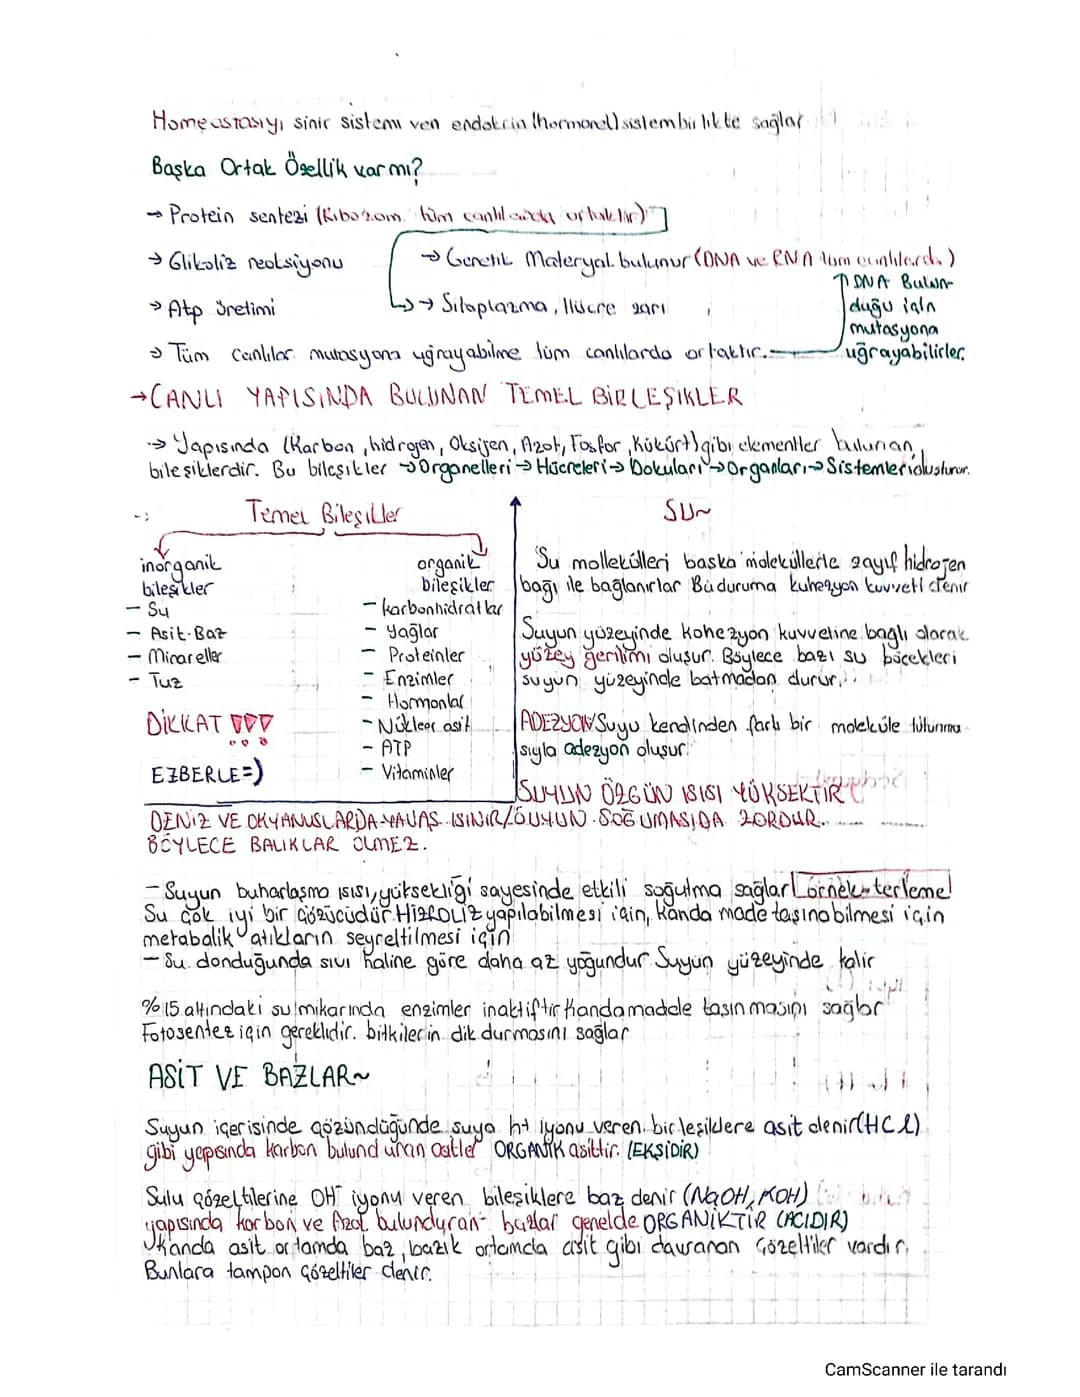 Homeostasıyı sinir sistemi ven endokrin (hormonel) sistem birlikte sağlar
Başka Ortak Özellik var mı?
→ Protein sentezi (Ribozom tüm canlılarda ortaktır)
→ Glikoliz reaksiyonu
→ Genetik Materyal bulunur (DNA ve RNA tüm canlılarda)
→ Atp üretimi
→ Sitoplazma, Hücre zarı
↑ DNA Bulun-
duğu için
mutasyona
uğrayabilirler.
→ Tüm canlılar mutasyona uğrayabilme tüm canlılarda ortaktır.
→ CANLI YAPISINDA BULUNAN TEMEL BİRLEŞİKLER
→ Yapısında (Karbon, hidrojen, Oksijen, Azot, Fosfor, Kükürt) gibi elementler bulunan
bileşiklerdir. Bu bileşikler → Organelleri → Hücreleri → Dokuları → Organları → Sistemleri oluşturur.
Temel Bileşikler
inorganik
bileşikler
- Su
- Asit-Baz
- Minareller
- Tuz
DİKKAT !!!
EZBERLE=)
organik
bileşikler
- karbonhidratlar
- Yağlar
- Proteinler
- Enzimler
- Hormonlar
- Nükleer asit
- ATP
- Vitaminler
SU~
Su mollekülleri başka moleküllerle zayıf hidrojen
bağı ile bağlanırlar Bu duruma kohezyon kuvveti denir
Suyun yüzeyinde kohezyon kuvvetine bağlı olarak
yüzey gerilimi oluşur. Böylece bazı su böcekleri
suyun yüzeyinde batmadan durur.
ADEZYON Suyu kendinden farlı bir moleküle tutunma
sıyla adezyon oluşur.
SUYUN ÖZGÜN ISISI YÜKSEKTİR
DENİZ VE OKYANUSLARDA YAVAŞ ISINIR/SUYUN SOĞUMASIDA ZORDUR.
BÖYLECE BALIKLAR ÖLMEZ.
- Suyun buharlaşma ısısı, yüksekliği sayesinde etkili soğutma sağlar örnek-terleme
Su çok iyi bir çözücüdür. HİZROLİZ yapılabilmesi için, Kanda made taşınabilmesi için
metabalik atıkların seyreltilmesi için
- Su donduğunda sıvı haline göre daha az yoğundur Suyun yüzeyinde kalir
%15 altındaki su mikarında enzimler inaktiftir Kanda madde taşınmasını sağlar
Fotosentez için gereklidir. bitkilerin dik durmasını sağlar
ASİT VE BAZLAR~
Suyun içerisinde çözündüğünde suya h+ iyonu veren bileşiklere asit denir (HCl)
gibi yapısında karbon bulunduran asitler ORGANİK asittir. (EKŞİDİR)
Sulu çözeltilerine OH⁻ iyonu veren bileşiklere baz denir (NaOH, KOH)
yapısında karbon ve Azot bulunduran bazlar genelde ORGANİKTİR (ACIDIR)
Kanda asit ortamda baz, bazik ortamda asit gibi davranan çözeltiler vardır.
Bunlara tampon çözeltiler denir.
CamScanner ile tarandı